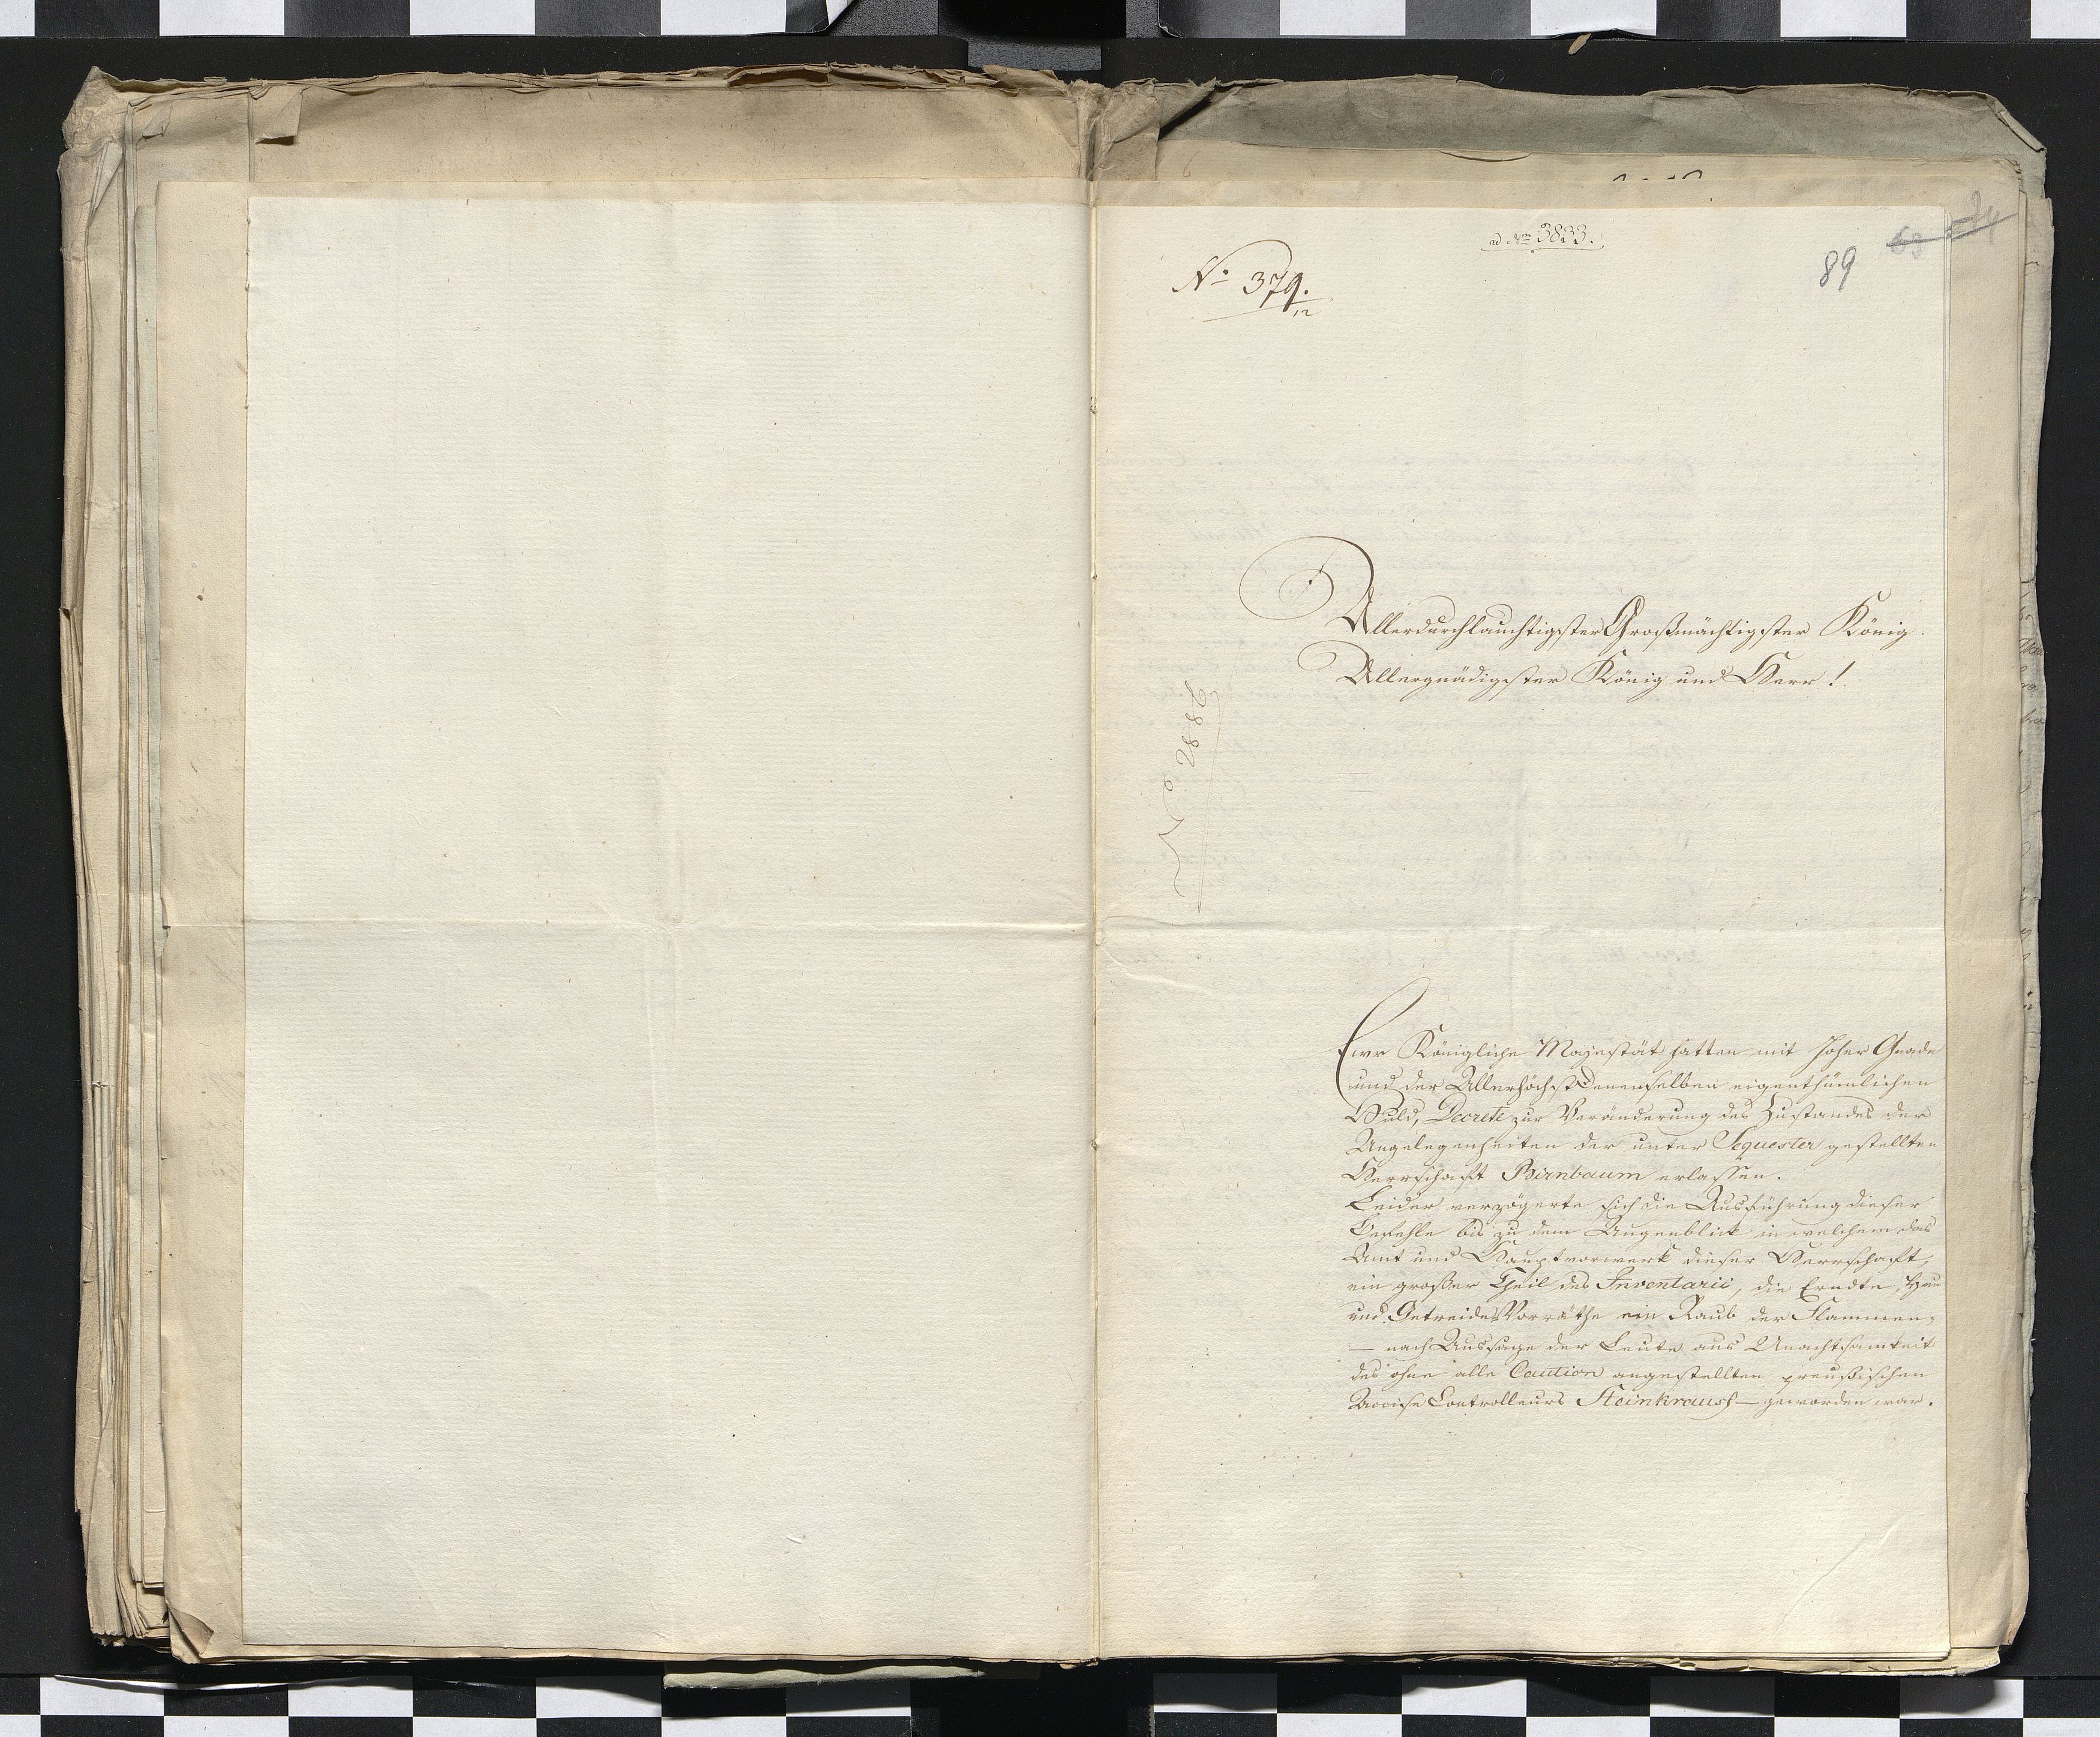 ad Nrm 3833.
No 379.
12
89
63
74
Allerdurchlauchtigster Großmächtigster König.
Allergnädigster König und Herr!
No. 2886
Ewr Königliche Majestät hatten mit hoher Gnade
und der Allerhöchst Denenselben eigenthümlichen
Huld, Decrete zur Veränderung des Zustandes der
Angelegenheiten der unter Sequester gestellten
Herrschaft Birnbaum erlassen.
Leider verzögerte sich die Ausführung dieser
Befehle bis zu dem Augenblick in welchem das
Amt und Hauptvorwerk dieser Herrschaft,
ein großer Theil des Inventarii, die Erndte, Heu
und Getreides Vorräthe ein Raub der Flammen,
— nach Aussage der Leute aus Unachtsamkeit
des ohne alle Caution angestellten preußischen
Accise Controlleurs Steinkrausch — geworden war.